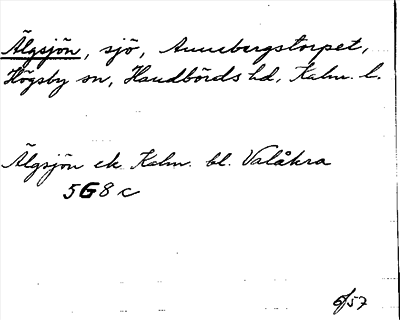 Älgsjön, sjö, Annebergstorpet,
Högsby sn, Handbörds hd, Kalm. l.
Älgsjön ek. Kalm. bl. Valåkra
5G8c
/57